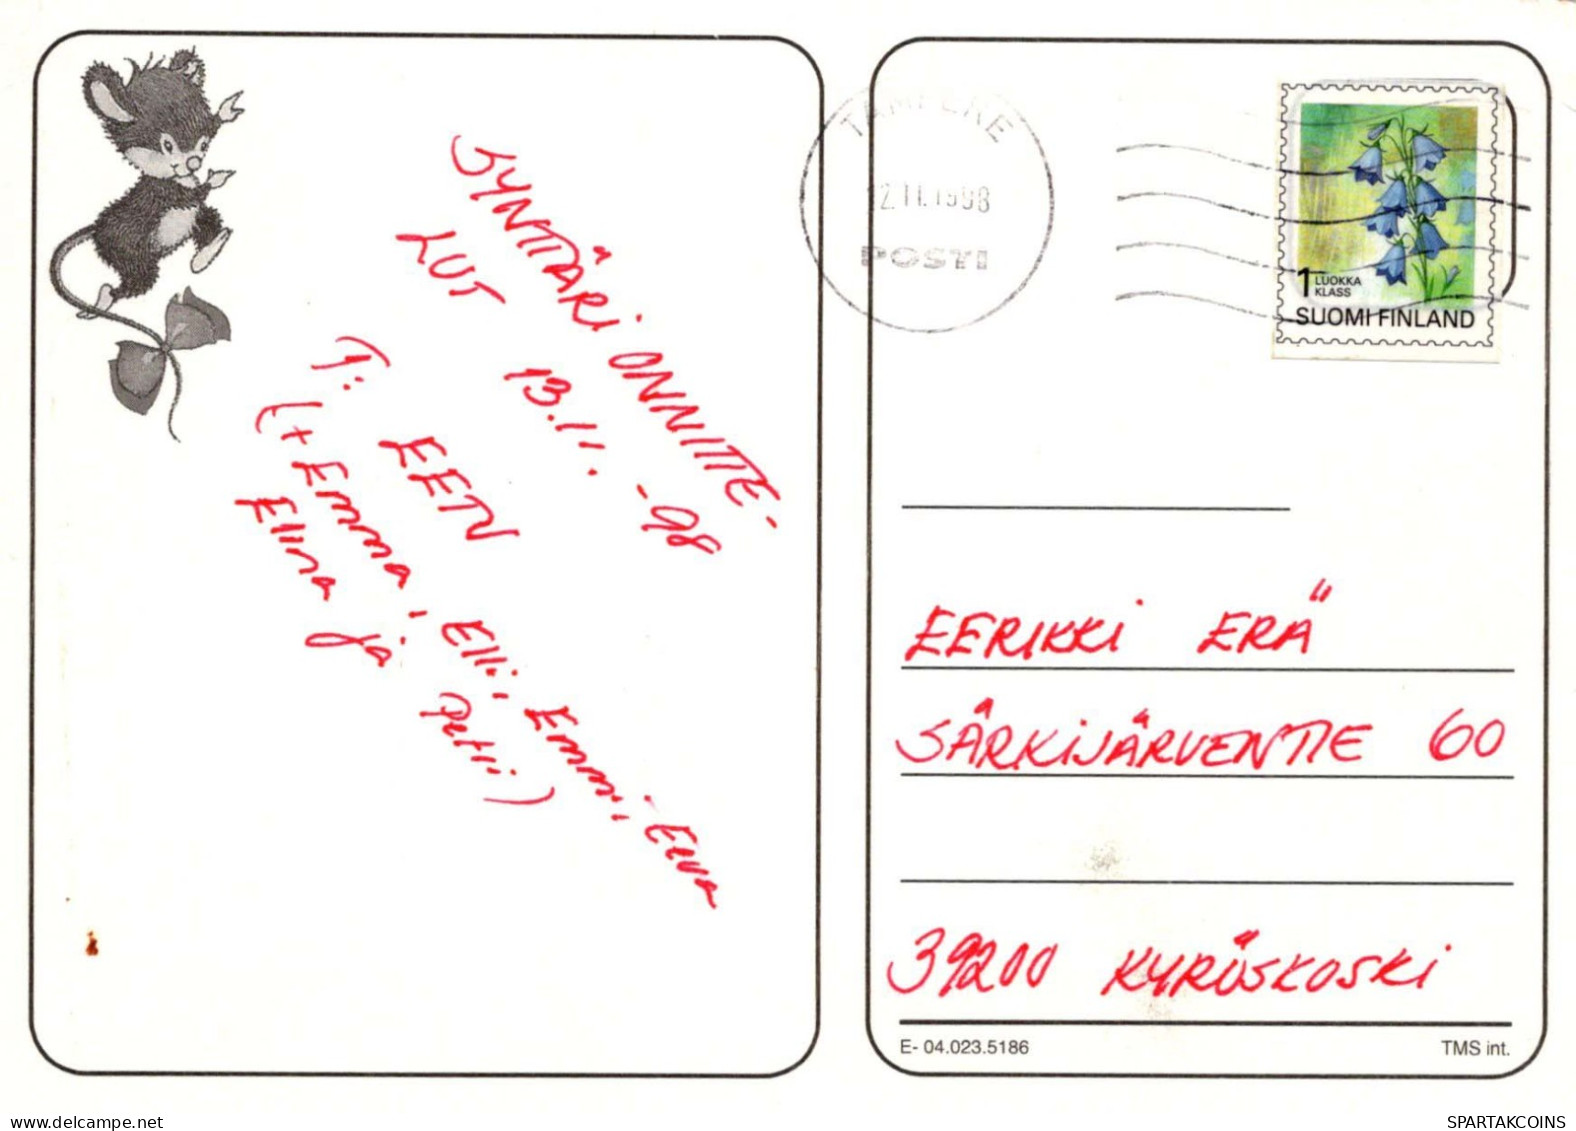 SYNTTÄRI ONNITTE-
LUT 13.11.-98
T: EETU
(+ Emma, Elli, Emmi, Eeva
Elina ja Petri)
TAMPERE
12.11.1998
POSTI
1 LUOKKA
KLASS
SUOMI FINLAND
EERIKKI ERÄ
SÄRKIJÄRVENTIE 60
39200 KYRÖSKOSKI
E- 04.023.5186
TMS int.
oldthing.net
SPARTAKCOINS